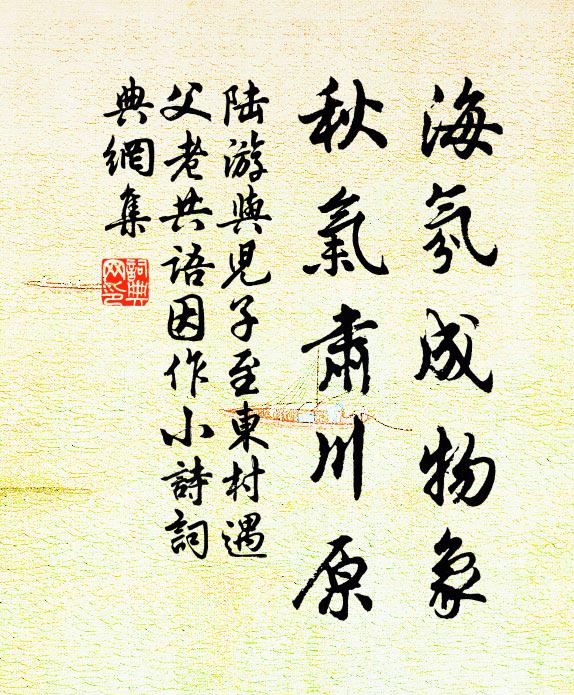 海氛成物象
秋氣肅川原
陆游與兒子至東村遇
父老共語因作小詩詞
典網集
詞典网印